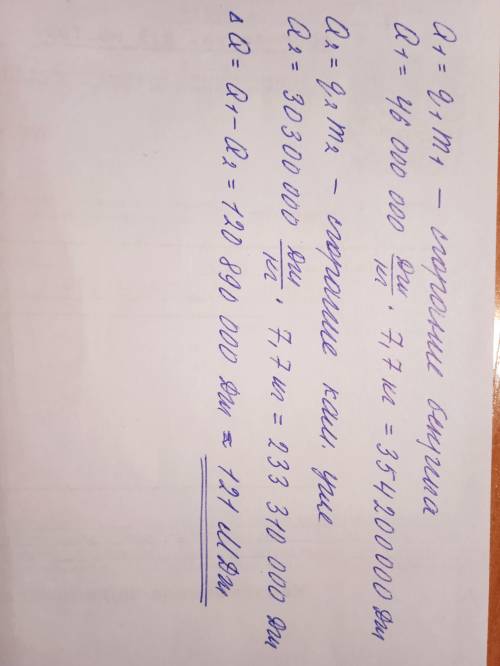 Q₁ = q₁m₁ – сгорание бензина
Q₁ = 46 000 000 Дж/кг · 7,7 кг = 354200000 Дж
Q₂ = q₂m₂ – сгорание кам. угля
Q₂ = 30300000 Дж/кг · 7,7 кг = 233 310 000 Дж
ΔQ = Q₁ – Q₂ = 120 890 000 Дж ≈ 121 МДж